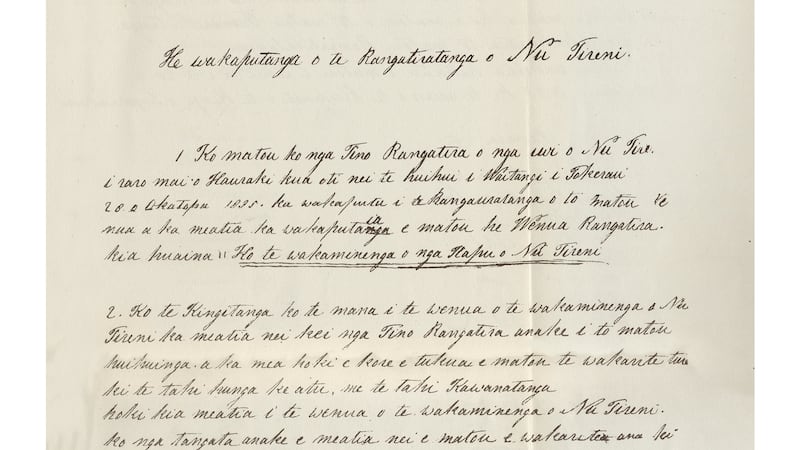 He wakaputanga o te Rangatiratanga o Nu Tireni.
1 Ko matou ko nga Tino Rangatira o nga iwi o Nu Tire.
i raro mai o Hauraki kua oti nei te huihui i Waitangi i Tokerau
28 o Oketopa 1835. ka wakaputa i te Rangatiratanga o to matou We
nua a ka meatia ka wakaputaia e matou he Wenua Rangatira.
kia huaina "Ko te wakaminenga o nga Hapu o Nu Tireni
2. Ko te Kingitanga ko te mana i te wenua o te wakaminenga o Nu
Tireni ka meatia nei kei nga Tino Rangatira anake i to matou
huihuinga. a ka mea hoki e kore e tukua e matou te wakarite ture
ki te tahi hunga ke atu, me te tahi Kawanatanga
hoki kia meatia i te wenua o te wakaminenga o Nu Tireni.
ko nga tangata anake e meatia nei e matou e wakarite ana ki